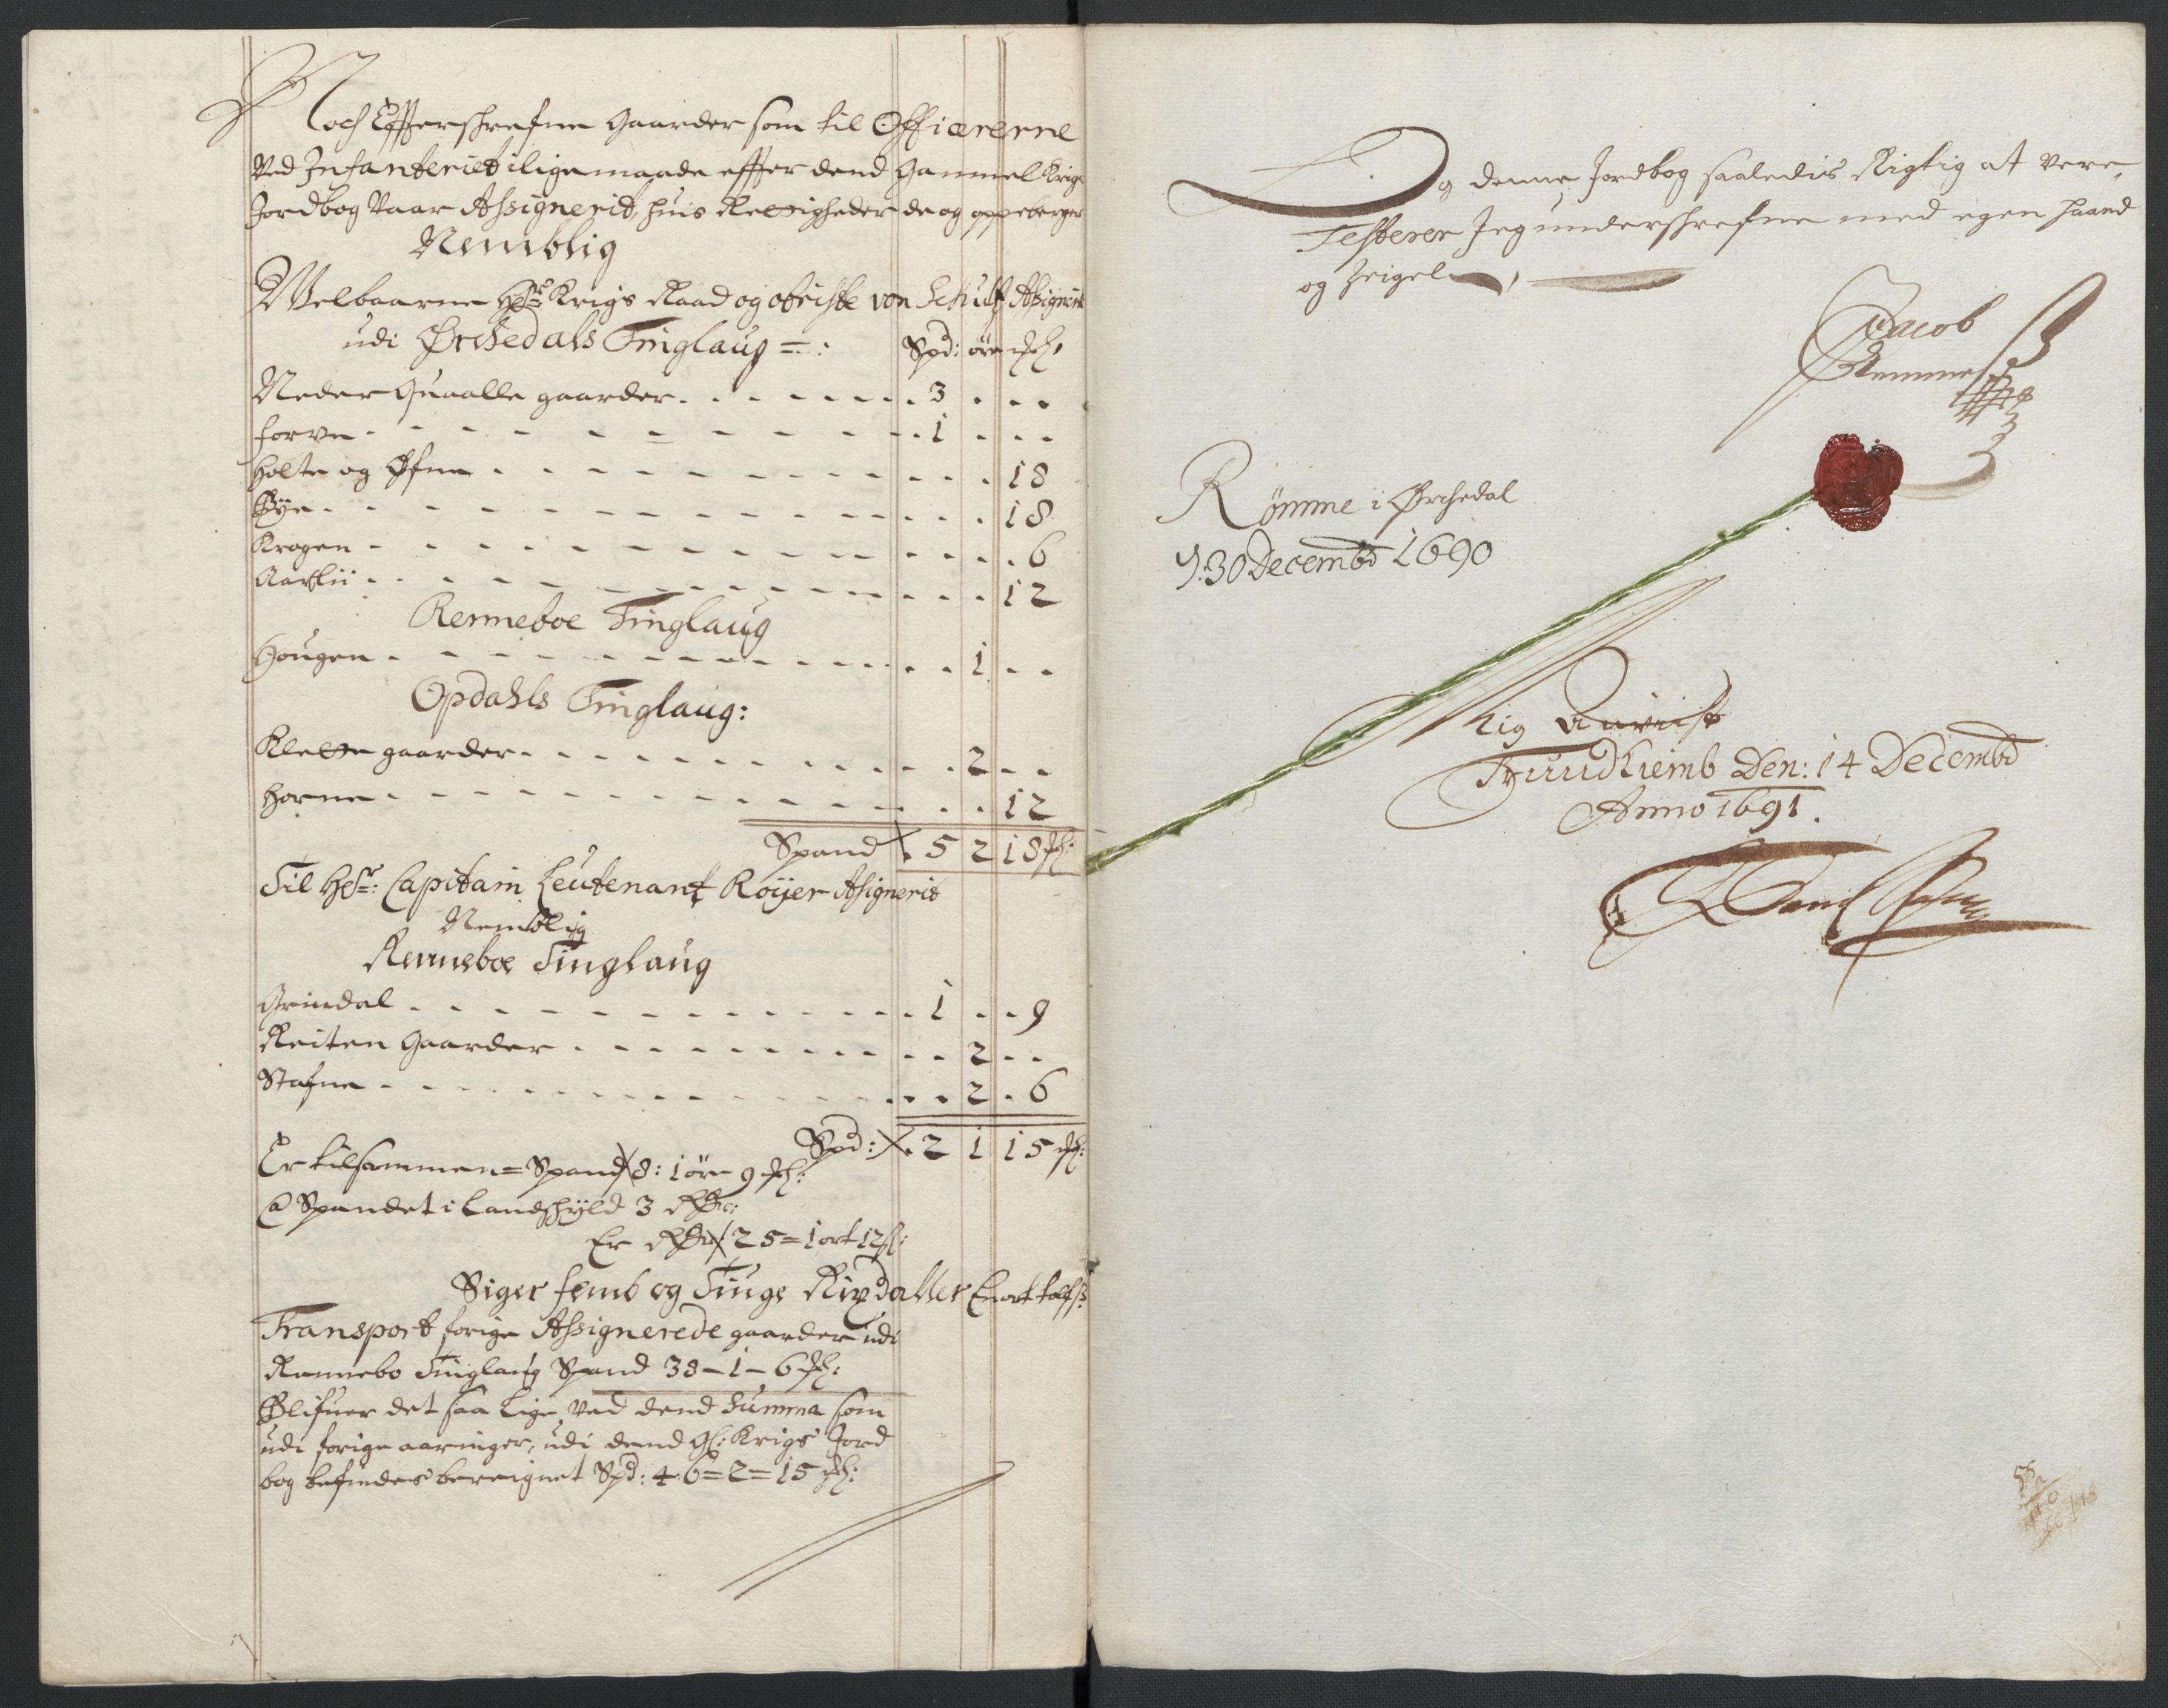 Noch Effterschrefne Gaarder som til Officererne
Ved Infanteriet iligemaade effter dend Gammel Krigs
Jordbog Vaar Assignerit, huis Rettigheder de og oppeberger
Nemblig
Welbaarne Hr: Krigs Raad og obriste von Schultz Assignerit
udi Ørchedals Tinglaug =: Spd: øre ML:
Neder Quaalle gaarder . . . 3 . . .
forve . . . 1 . . .
Holte og Øfne . . . 18
Bye . . . 18
Kragen . . . 6
Aarlii . . . 12
Renneboe Tinglaug
Hougen . . . 1 . .
Opdahls Tinglaug:
Klette gaarder . . . 2 . .
Horne . . . 12
Spand . 5 2 18 ML:
Til Hr: Capitain Leutenant Røyer Assignerit
Nemblig
Renneboe Tinglaug
Grindal . . . 1 . . 9
Reiten Gaarder . . . 2 . .
Stafne . . . 2 . 6
Spd: . 2 1 15 ML:
Er tilsammen = Spand 8: 1 øre 9 ML:
a Spandet i Landschyld 3 Rdr:
Er Rdr 25 = 1 ort 12 s:
Siger femb og Tiuge Rixdaller En ort tolf s:
Transport forige Assignerede gaarder udi
Rennebo Tinglaug Spand 38 - 1 - 6 ML:
Blifuer det saa lige ved dend Summa som
udi forige aaringer, udi dend Gl: Krigs Jord
bog befindes bereignet Spd: 46 = 2 = 15 ML:
Og denne Jordbog saaledis Rigtig at vere,
Testerer Jeg underschrefne med egen haand
og Zeigel
Jacob
Rømme i Ørchedal
d: 30 Decembr 1690
Lig
Trundhiemb Den: 14 Decembr
Anno 1691.